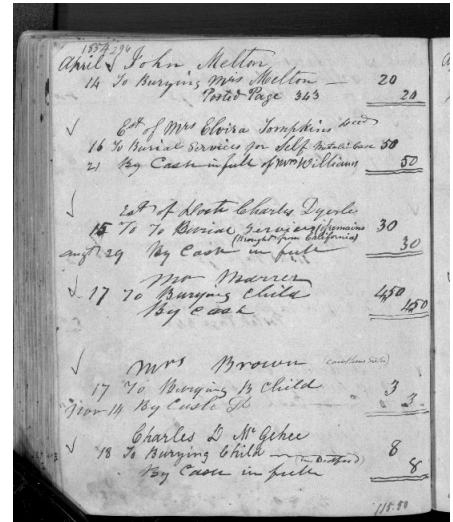 1854 296
April √ John Melton
14 To Burying Mrs Melton — 20
Posted Page 343 20
√ Est of Mrs Elvira Tompkins decd
16 To Burial Services for Self Metalic Case 50
21 By Cash in full of Wm Williams 50
√ Est of Doctr Charles Dyerle
15 To To Burial Services (remains 30
(brought from California)
Augt 29 By Cash in full 30
√ Mr Marrer
17 To Burying Child 4,50
By Cash 4,50
√ Mrs Brown
17 To Burying B Child 3
Nov 14 By Cash 3
√ Charles D McGehee
18 To Burying Child — 8
By Cash in full 8
115.50